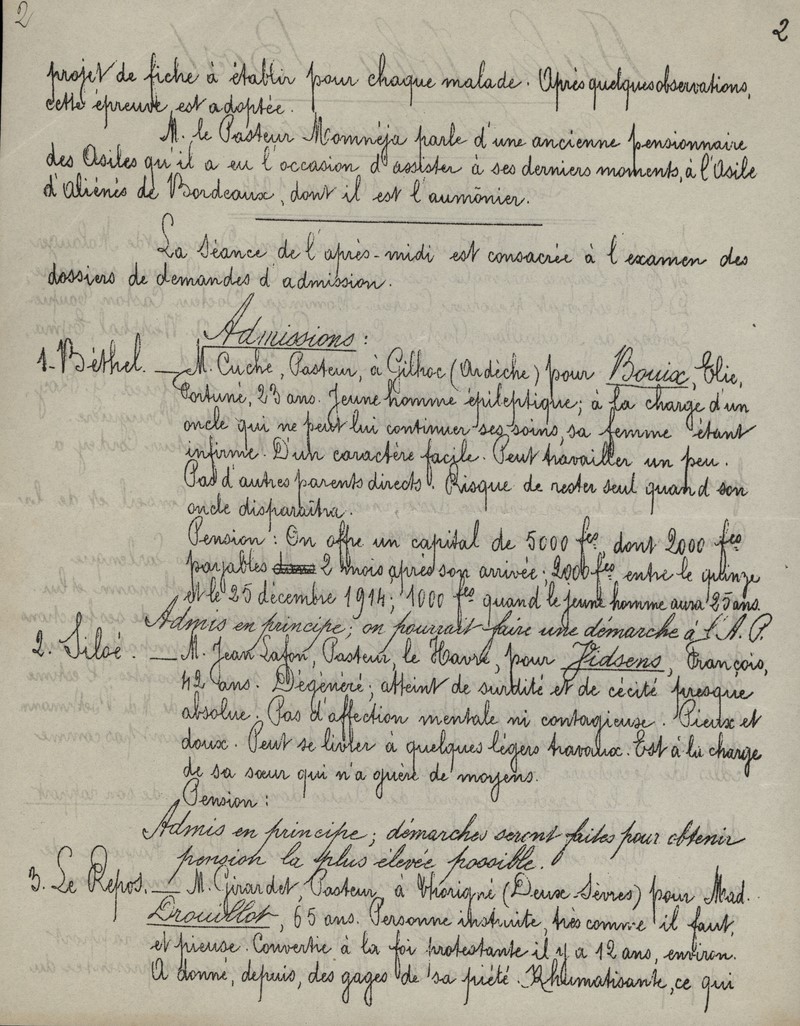 2
2
projet de fiche à établir pour chaque malade. Après quelques observations,
cette épreuve est adoptée.
M. le Pasteur Momnéja parle d'une ancienne pensionnaire
des Asiles qu'il a eu l'occasion d'assister à ses derniers moments, à l'Asile
d'Aliénés de Bordeaux, dont il est l'aumônier.
La Séance de l'après-midi est consacrée à l'examen des
dossiers de demandes d'admission.
Admissions :
1-Béthel. — M. Cuche, Pasteur, à Gilhoc (Ardèche) pour Bouix, Elie,
Fortuné, 23 ans. Jeune homme épileptique; à la charge d'un
oncle qui ne peut lui continuer ses soins, sa femme étant
infirme. D'un caractère facile. Peut travailler un peu.
Pas d'autres parents directs. Risque de rester seul quand son
oncle disparaîtra.
Pension : On offre un capital de 5000 fcs, dont 2000 fcs
payables dans 2 mois après son arrivée; 2000 fcs entre le quinze
et le 25 décembre 1914; 1000 fcs quand le jeune homme aura 25 ans.
Admis en principe; on pourrait faire une démarche à l'A.P.
2. Siloé. — M. Jean Lafon, Pasteur, le Havre, pour Vidsens, François,
42 ans. Dégénéré; atteint de surdité et de cécité presque
absolue. Pas d'affection mentale ni contagieuse. Pieux et
doux. Peut se livrer à quelques légers travaux. Est à la charge
de sa sœur qui n'a guère de moyens.
Pension :
Admis en principe; démarches seront faites pour obtenir
pension la plus élevée possible.
3. Le Repos. — M. Girardet, Pasteur, à Thorigné (Deux Sèvres) pour Mad.
Drouillot, 65 ans. Personne instruite, très comme il faut,
et pieuse. Convertie à la foi protestante il y a 12 ans, environ.
A donné, depuis, des gages de sa piété. Rhumatisante, ce qui